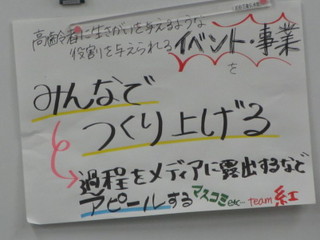 高齢者に生きがいを与えるような
役割を与えられるイベント・事業
を
みんなで
つくり上げる
過程をメディアに露出するなど
アピールする マスコミetc- team 紅